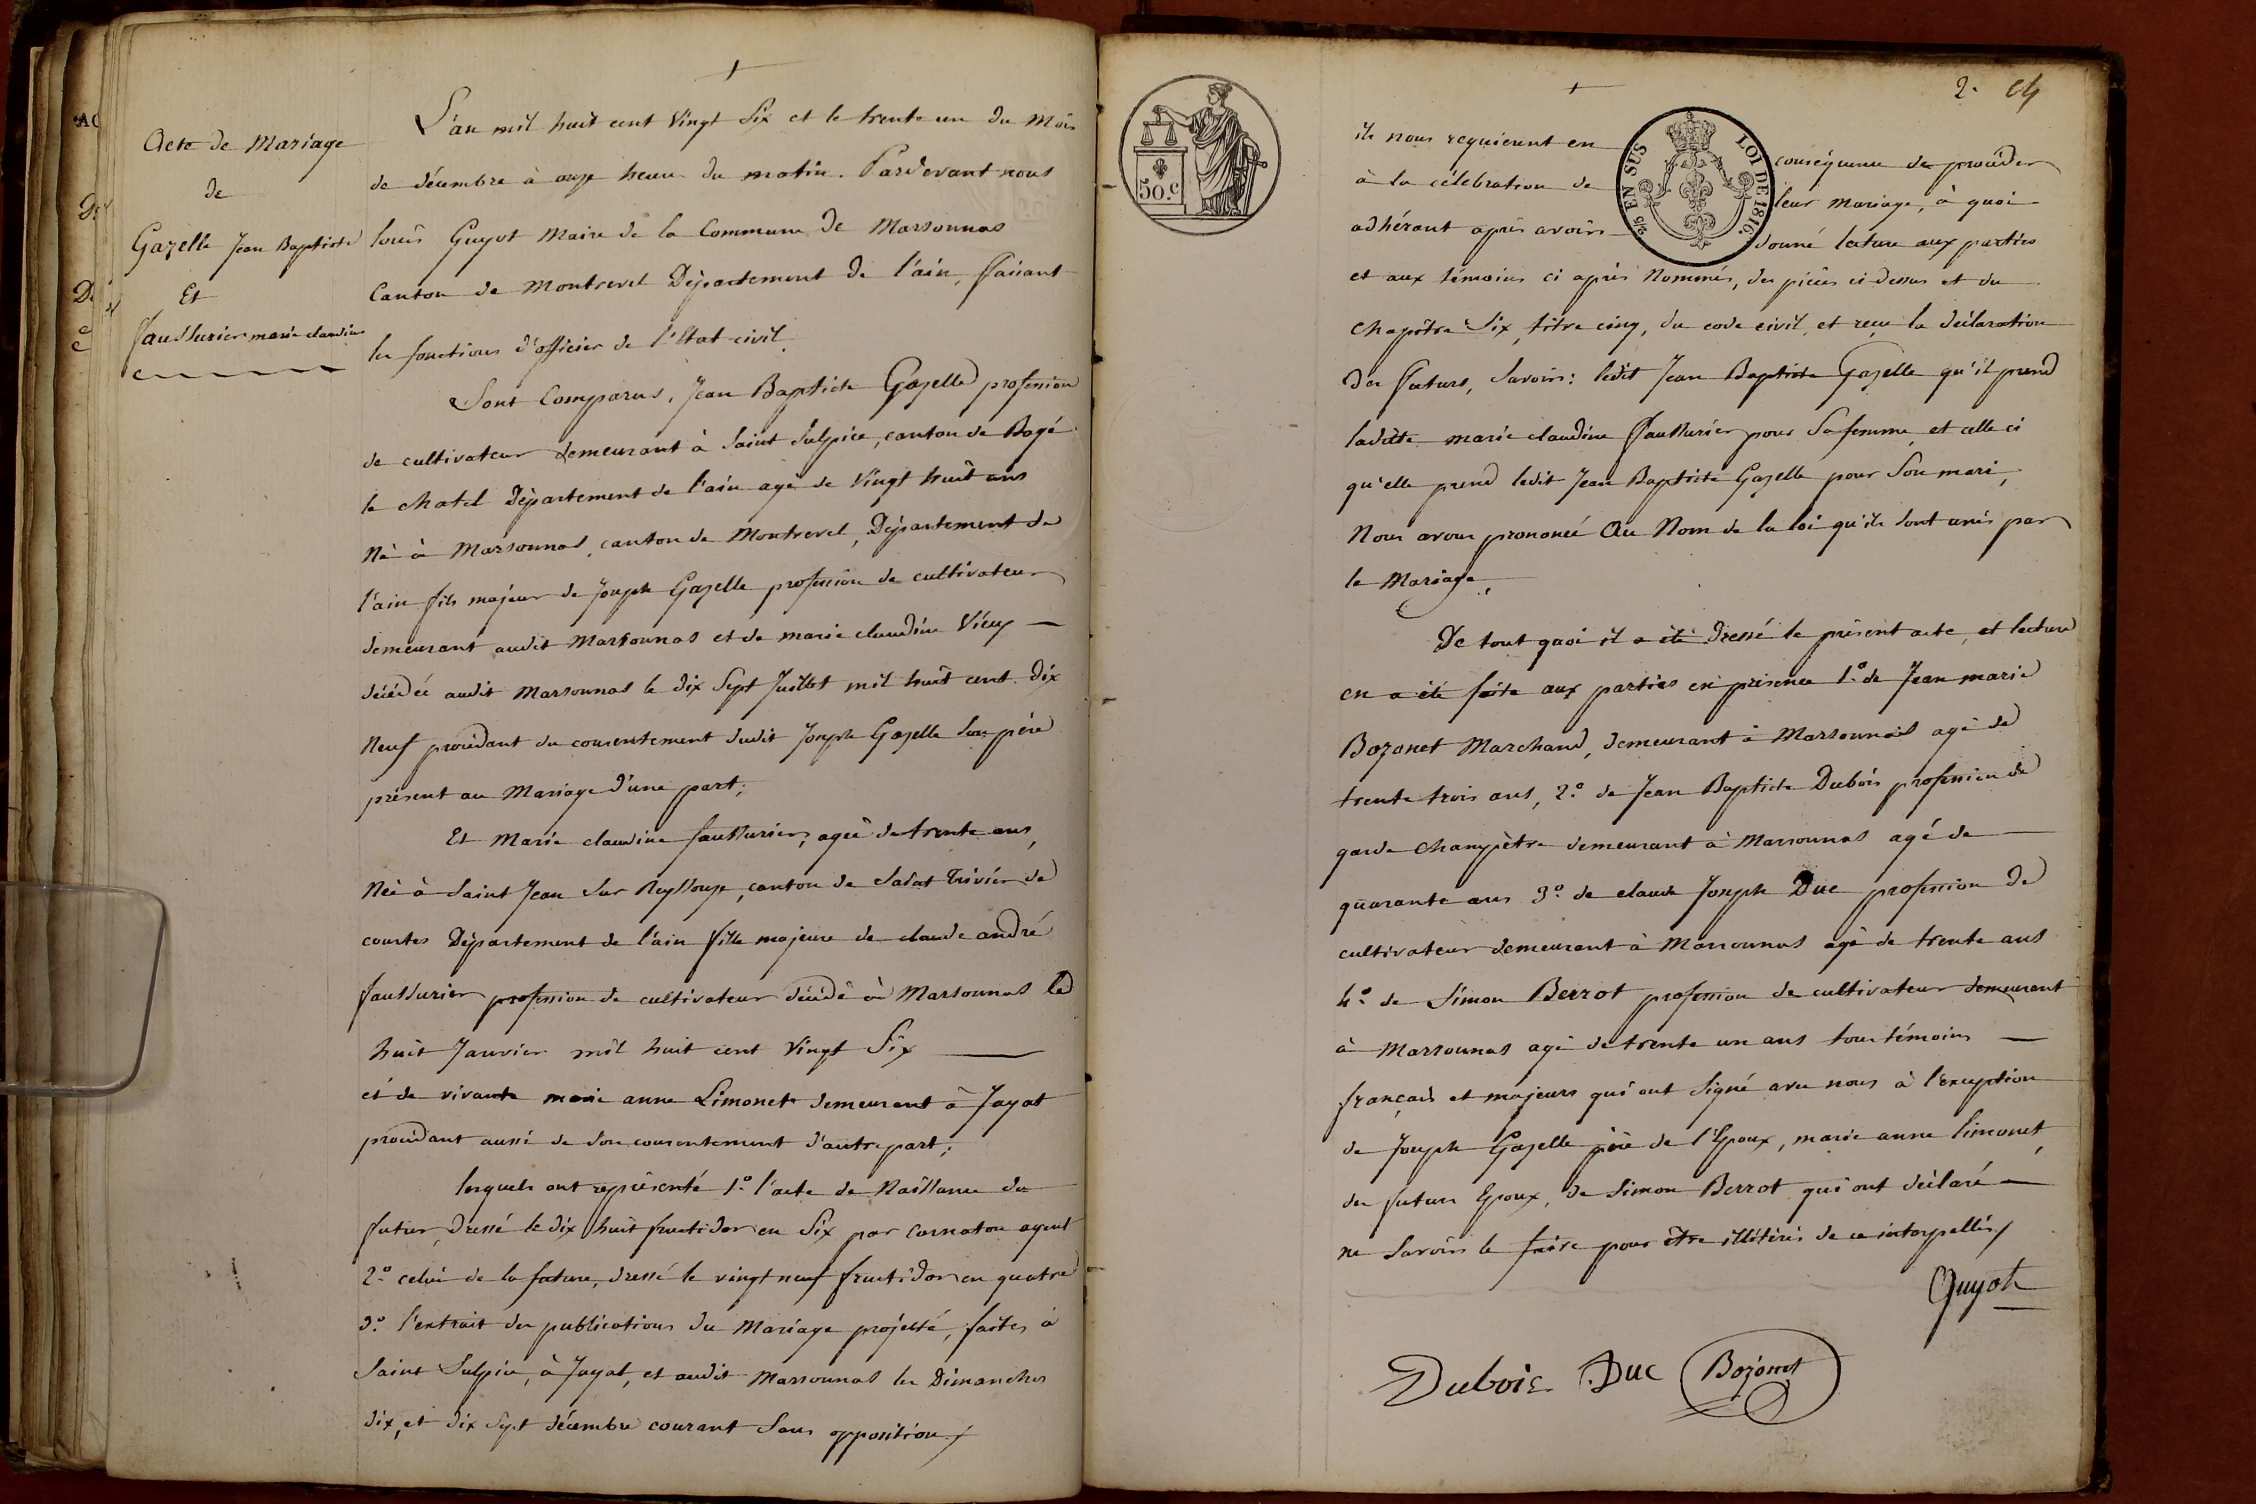 Acte de Mariage
de
Gazelle Jean Baptiste
Et
faussurier marie claudine
L'an mil huit cent Vingt Six et le trente un du Mois
de décembre à onze heure du matin. Pardevant nous
louis Guyot Maire de la Commune de Marsonnas
Canton de Montrevel Département de l'ain, faisant
les fonctions d'officier de l'Etat civil.
Sont Comparus, Jean Baptiste Gazelle profession
de cultivateur demeurant à Saint Sulpice, canton de Bagé
le chatel Département de l'ain agé de Vingt huit ans
Né à Marsonnas, canton de Montrevel, Département de
l'ain fils majeur de Joseph Gazelle profession de cultivateur
demeurant audit Marsonnas et de marie claudine Vieux
décédée audit Marsonnas le dix Sept Juillet mil huit cent dix
Neuf procédant du consentement dudit Joseph Gazelle son père
présent au Mariage d'une part;
Et Marie claudine faussurier, agée de trente ans,
Née à Saint Jean Sur Reyssouze, canton de Saint Trivier de
courtes Département de l'ain fille majeure de claude andré
faussurier profession de cultivateur décédé à Marsonnas le
huit Janvier mil huit cent Vingt Six
et de vivante marie anne Limonet demeurant à Jayat
procédant aussi de son consentement d'autre part;
lesquels ont représenté 1.° l'acte de Naissance du
futur, dressé le dix huit fructidor en Six par agent
2.° celui de la future, dressé le vingt neuf fructidor en quatre
3.° l'extrait des publications du Mariage projetté, faites à
Saint Sulpice, à Jayat, et audit Marsonnas les Dimanches
dix, et dix Sept décembre courant Sans opposition /
50.c
2.
ils nous requierent en conséquence de procéder
à la célebration de leur Mariage, à quoi
adhérant après avoir donné lecture aux parties
2/5 EN SUS LOI DE 1816.
et aux témoins ci après Nommés, des pièces ci dessus et du
chapître Six, titre cinq, du code civil, et reçu la déclaration
des futurs, Savoir: ledit Jean Baptiste Gazelle qu'il prend
ladite marie claudine faussurier pour Sa femme, et celle ci
qu'elle prend ledit Jean Baptiste Gazelle pour Son mari,
Nous avons prononcé Au Nom de la loi qu'ils sont unis par
le Mariage.
De tout quoi il a été dressé le présent acte, et lecture
en a été faite aux parties en présence 1.° de Jean marie
Bozonet Marchand, demeurant à Marsonnas agé de
trente trois ans, 2.° de Jean Baptiste Dubois profession de
garde champêtre demeurant à Marsonnas agé de
quarante ans 3.° de claude Joseph Duc profession de
cultivateur demeurant à Marsonnas agé de trente ans
4.° de Simon Berrot profession de cultivateur demeurant
à Marsonnas agé de trente un ans tous témoins
français et majeurs qui ont Signé avec nous à l'exception
de Joseph Gazelle père de l'Epoux, marie anne limonet,
des futurs Epoux, de Simon Berrot qui ont déclaré
ne Savoir le faire pour être illitérés de ce interpellés /
Guyot
Dubois Duc Bozonet